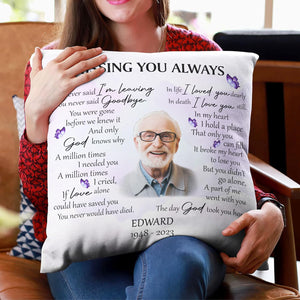 SING YOU ALWAYS
never said I'm leaving
never said Goodbye
You were gone
before we knew it
And only
God knows why
A million times
I needed you
A million times
I cried,
If love alone
could have saved you
You never would have died.
In life I loved you dearly
In death I love you still
In my heart
I hold a place
That only you
can fill
It broke my heart
to lose you
But you didn't
go alone
A part of me
went with you
The day God took you home
EDWARD
1948 - 2023